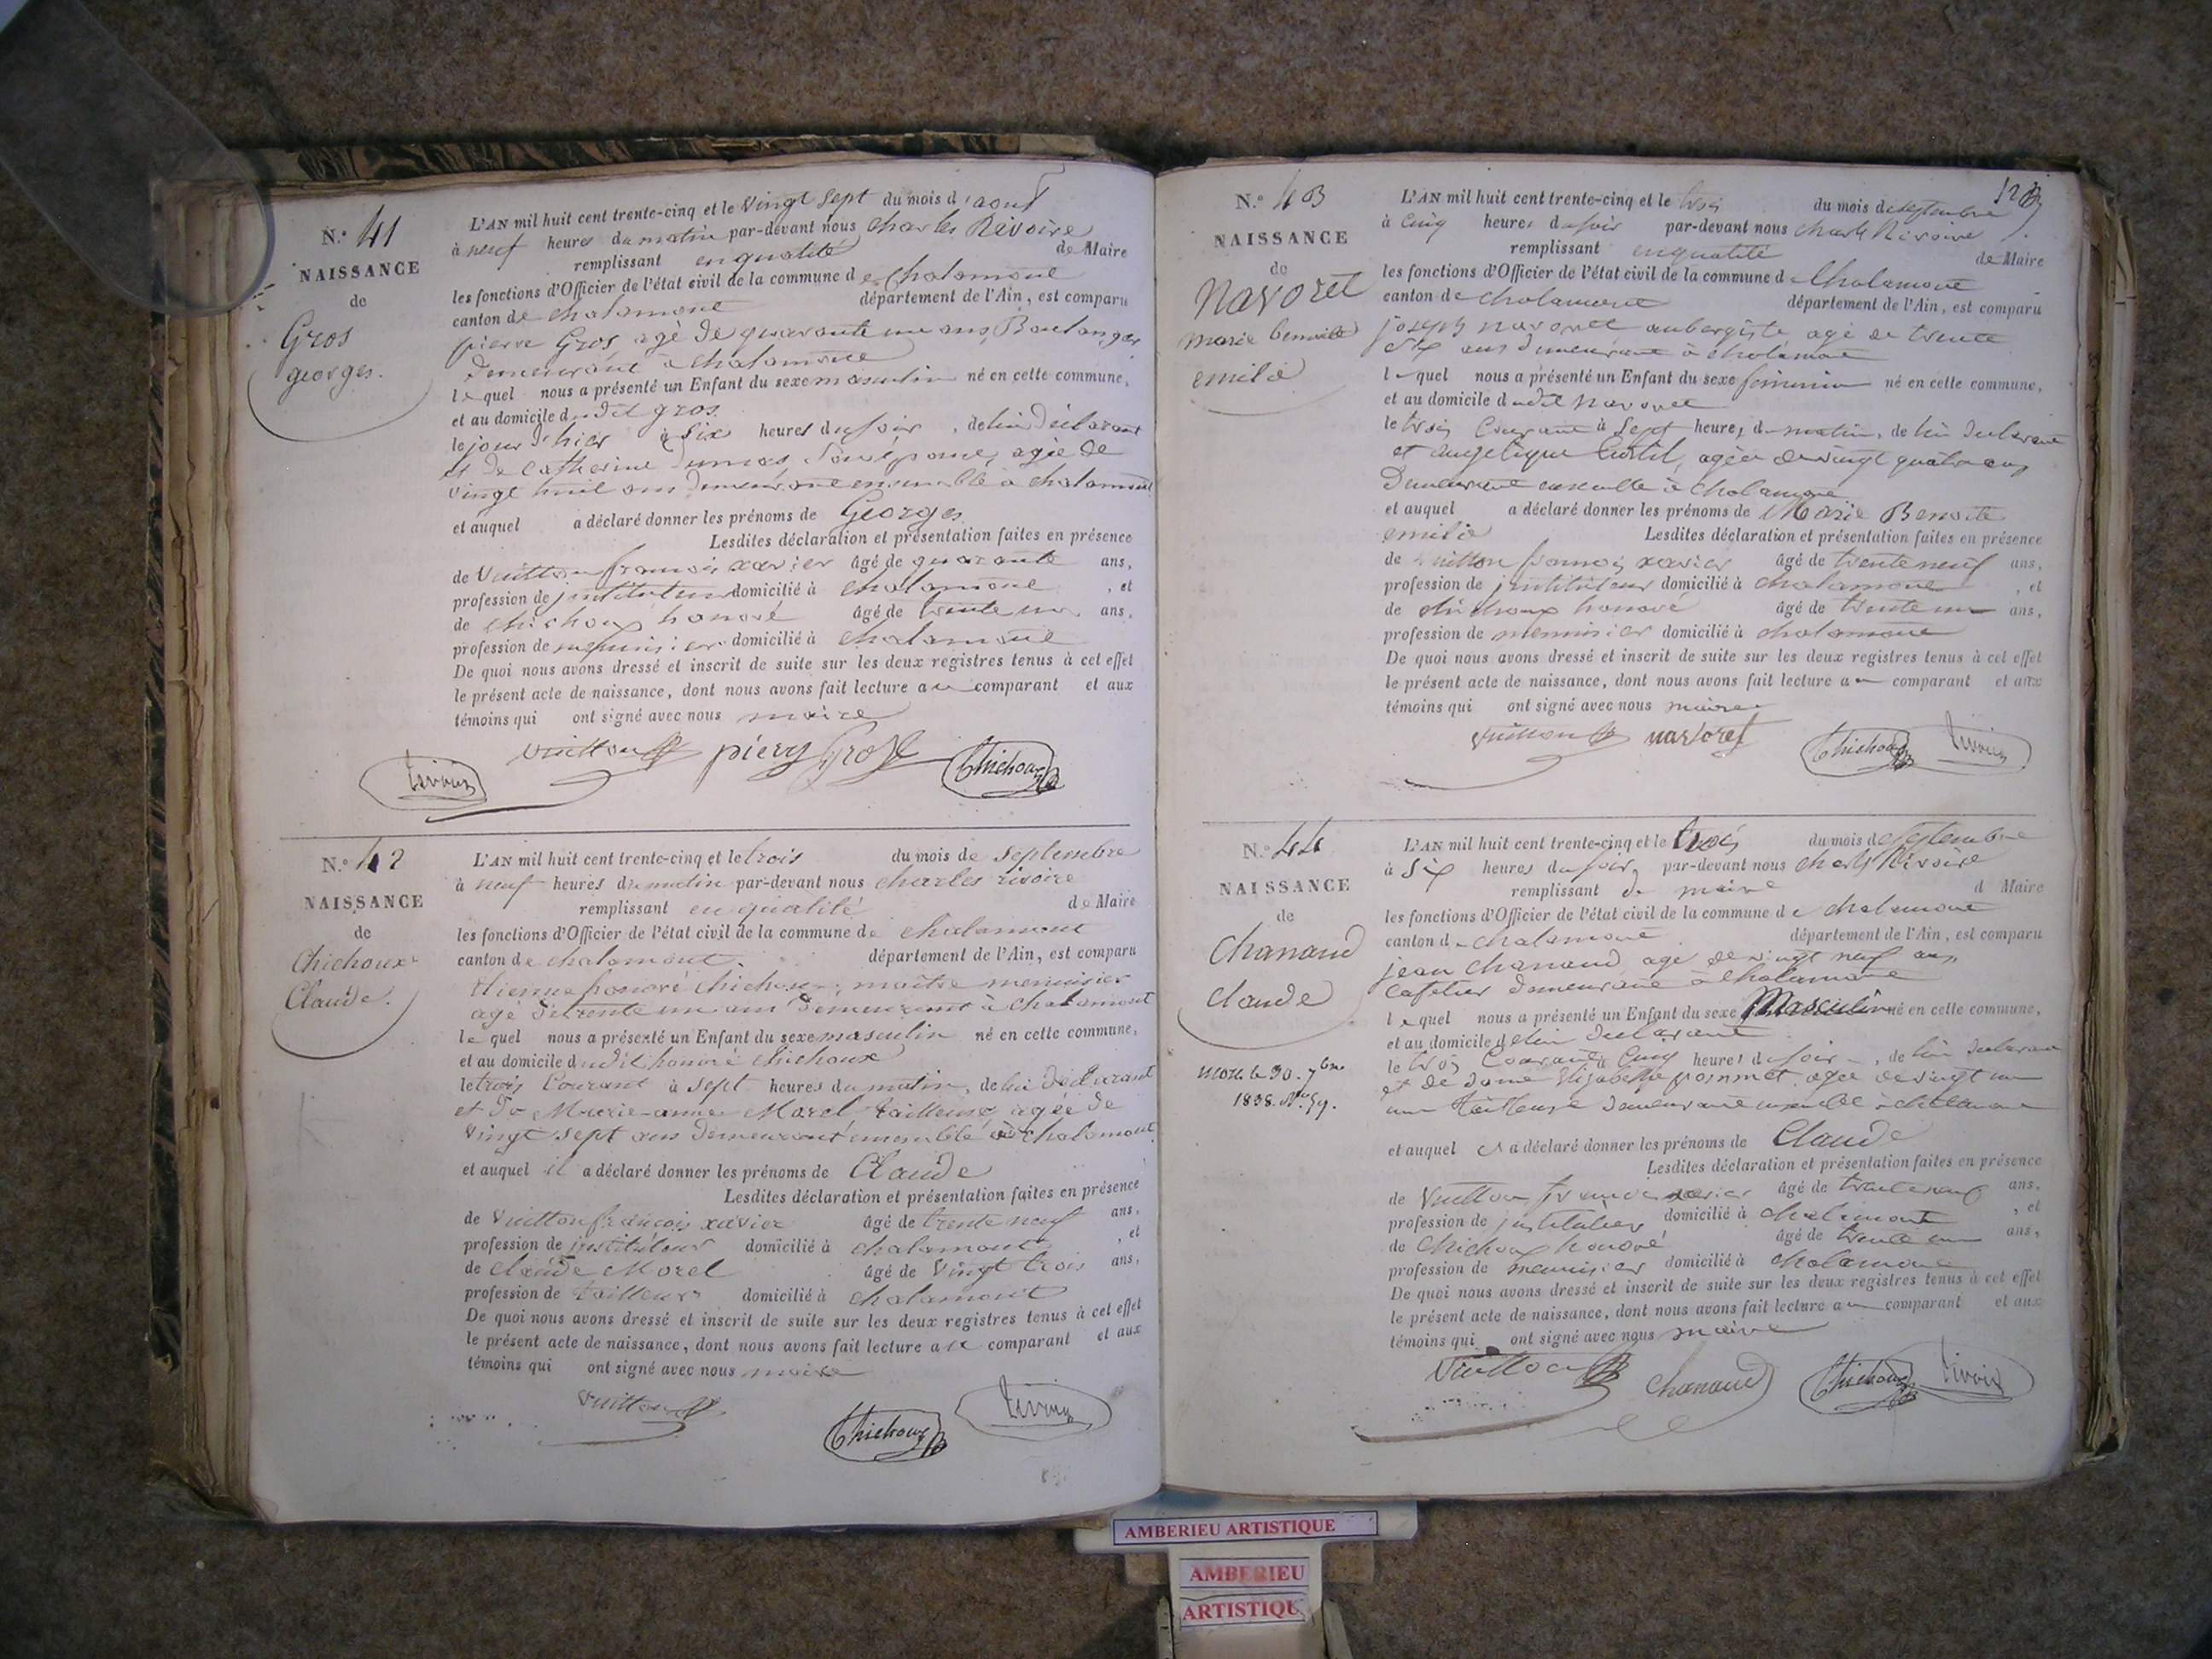 N.° 41
NAISSANCE
de
Gros
georges.
L'AN mil huit cent trente-cinq et le Vingt Sept du mois d'aout
à neuf heures du matin par-devant nous Charles Rivoire
remplissant en qualité de Maire
les fonctions d'Officier de l'état civil de la commune de Chalamont
canton de chalamont département de l'Ain, est comparu
pierre Gros, agé de quarante un ans, Boulanger
demeurant à chalamont
lequel nous a présenté un Enfant du sexe masculin né en cette commune,
et au domicile dudit gros.
le jour d'hier à Six heures du soir, de lui déclarant
et de Catherine Dumas, Son épouse, agée de
vingt huit ans demeurant ensemble à chalamont
et auquel a déclaré donner les prénoms de Georges
Lesdites déclaration et présentation faites en présence
de Vuitton françois xavier âgé de quarante ans,
profession de jnstituteur domicilié à chalamont, et
de chichoux honoré âgé de trente un ans,
profession de menuisier domicilié à chalamont
De quoi nous avons dressé et inscrit de suite sur les deux registres tenus à cet effet
le présent acte de naissance, dont nous avons fait lecture au comparant et aux
témoins qui ont signé avec nous maire
vuitton pierre Gros Chichoux
rivoire
N.° 42
NAISSANCE
de
Chichoux
Claude.
L'AN mil huit cent trente-cinq et le trois du mois de Septembre
à neuf heures du matin par-devant nous charles rivoire
remplissant en qualité de Maire
les fonctions d'Officier de l'état civil de la commune de chalamont
canton de chalamont. département de l'Ain, est comparu
Etienne honoré Chichoux, maître menuisier
agé de trente un ans demeurant à chalamont
lequel nous a présenté un Enfant du sexe masculin né en cette commune,
et au domicile dudit honoré chichoux
le trois Courant à sept heures du matin, de lui déclarant
et de Marie-anne Morel tailleuse, agée de
vingt sept ans demeurant ensemble à chalamont
et auquel il a déclaré donner les prénoms de Claude
Lesdites déclaration et présentation faites en présence
de Vuitton françois xavier âgé de trente neuf ans,
profession de jnstituteur domicilié à chalamont, et
de claude Morel âgé de Vingt trois ans,
profession de tailleur domicilié à chalamont
De quoi nous avons dressé et inscrit de suite sur les deux registres tenus à cet effet
le présent acte de naissance, dont nous avons fait lecture au comparant et aux
témoins qui ont signé avec nous maire
Vuitton Chichoux rivoire
N.° 43
NAISSANCE
de
Navoret
marie benoite
emilie
L'AN mil huit cent trente-cinq et le trois du mois de septembre
à Cinq heures du soir par-devant nous charles Rivoire
remplissant en qualité de Maire
les fonctions d'Officier de l'état civil de la commune de Chalamont
canton de chalamont département de l'Ain, est comparu
joseph navoret aubergiste agé de trente
six ans demeurant à chalamont
lequel nous a présenté un Enfant du sexe feminin né en cette commune,
et au domicile dudit Navoret
le trois Courant à Sept heures du matin, de lui declarant
et angelique agée de vingt quatre ans
Demeurant ensemble à chalamont
et auquel a déclaré donner les prénoms de Marie Benoite
emilie Lesdites déclaration et présentation faites en présence
de Vuitton françois xavier âgé de trente neuf ans,
profession de jnstituteur domicilié à chalamont, et
de chichoux honoré âgé de trente un ans,
profession de menuisier domicilié à chalamont
De quoi nous avons dressé et inscrit de suite sur les deux registres tenus à cet effet
le présent acte de naissance, dont nous avons fait lecture au comparant et aux
témoins qui ont signé avec nous maire
Vuitton navoret Chichoux rivoire
N.° 44
NAISSANCE
de
Chanaud
claude
mort le 30. 7bre
1838. N° 59.
L'AN mil huit cent trente-cinq et le trois du mois de Septembre
à Six heures du soir, par-devant nous charles Rivoire
remplissant de maire d Maire
les fonctions d'Officier de l'état civil de la commune de chalamont
canton de chalamont département de l'Ain, est comparu
jean chanaud agé de vingt neuf ans,
cafetier demeurant à chalamont
lequel nous a présenté un Enfant du sexe Masculin né en cette commune,
et au domicile de lui declarant
le trois Courant à Cinq heures du soir, de lui declarant
et de dame Elizabeth agée de vingt un
ans tailleuse demeurant ensemble à chalamont
et auquel il a déclaré donner les prénoms de Claude
Lesdites déclaration et présentation faites en présence
de Vuitton françois xavier âgé de trente neuf ans,
profession de jnstituteur domicilié à chalamont, et
de Chichoux honoré âgé de trente un ans,
profession de menuisier domicilié à chalamont
De quoi nous avons dressé et inscrit de suite sur les deux registres tenus à cet effet
le présent acte de naissance, dont nous avons fait lecture au comparant et aux
témoins qui ont signé avec nous maire
Vuitton Chanaud Chichoux rivoire
AMBERIEU ARTISTIQUE
AMBERIEU
ARTISTIQU